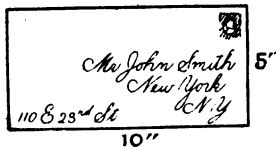 Mr John Smith
New York
110 E 23rd St N.Y
5"
10"